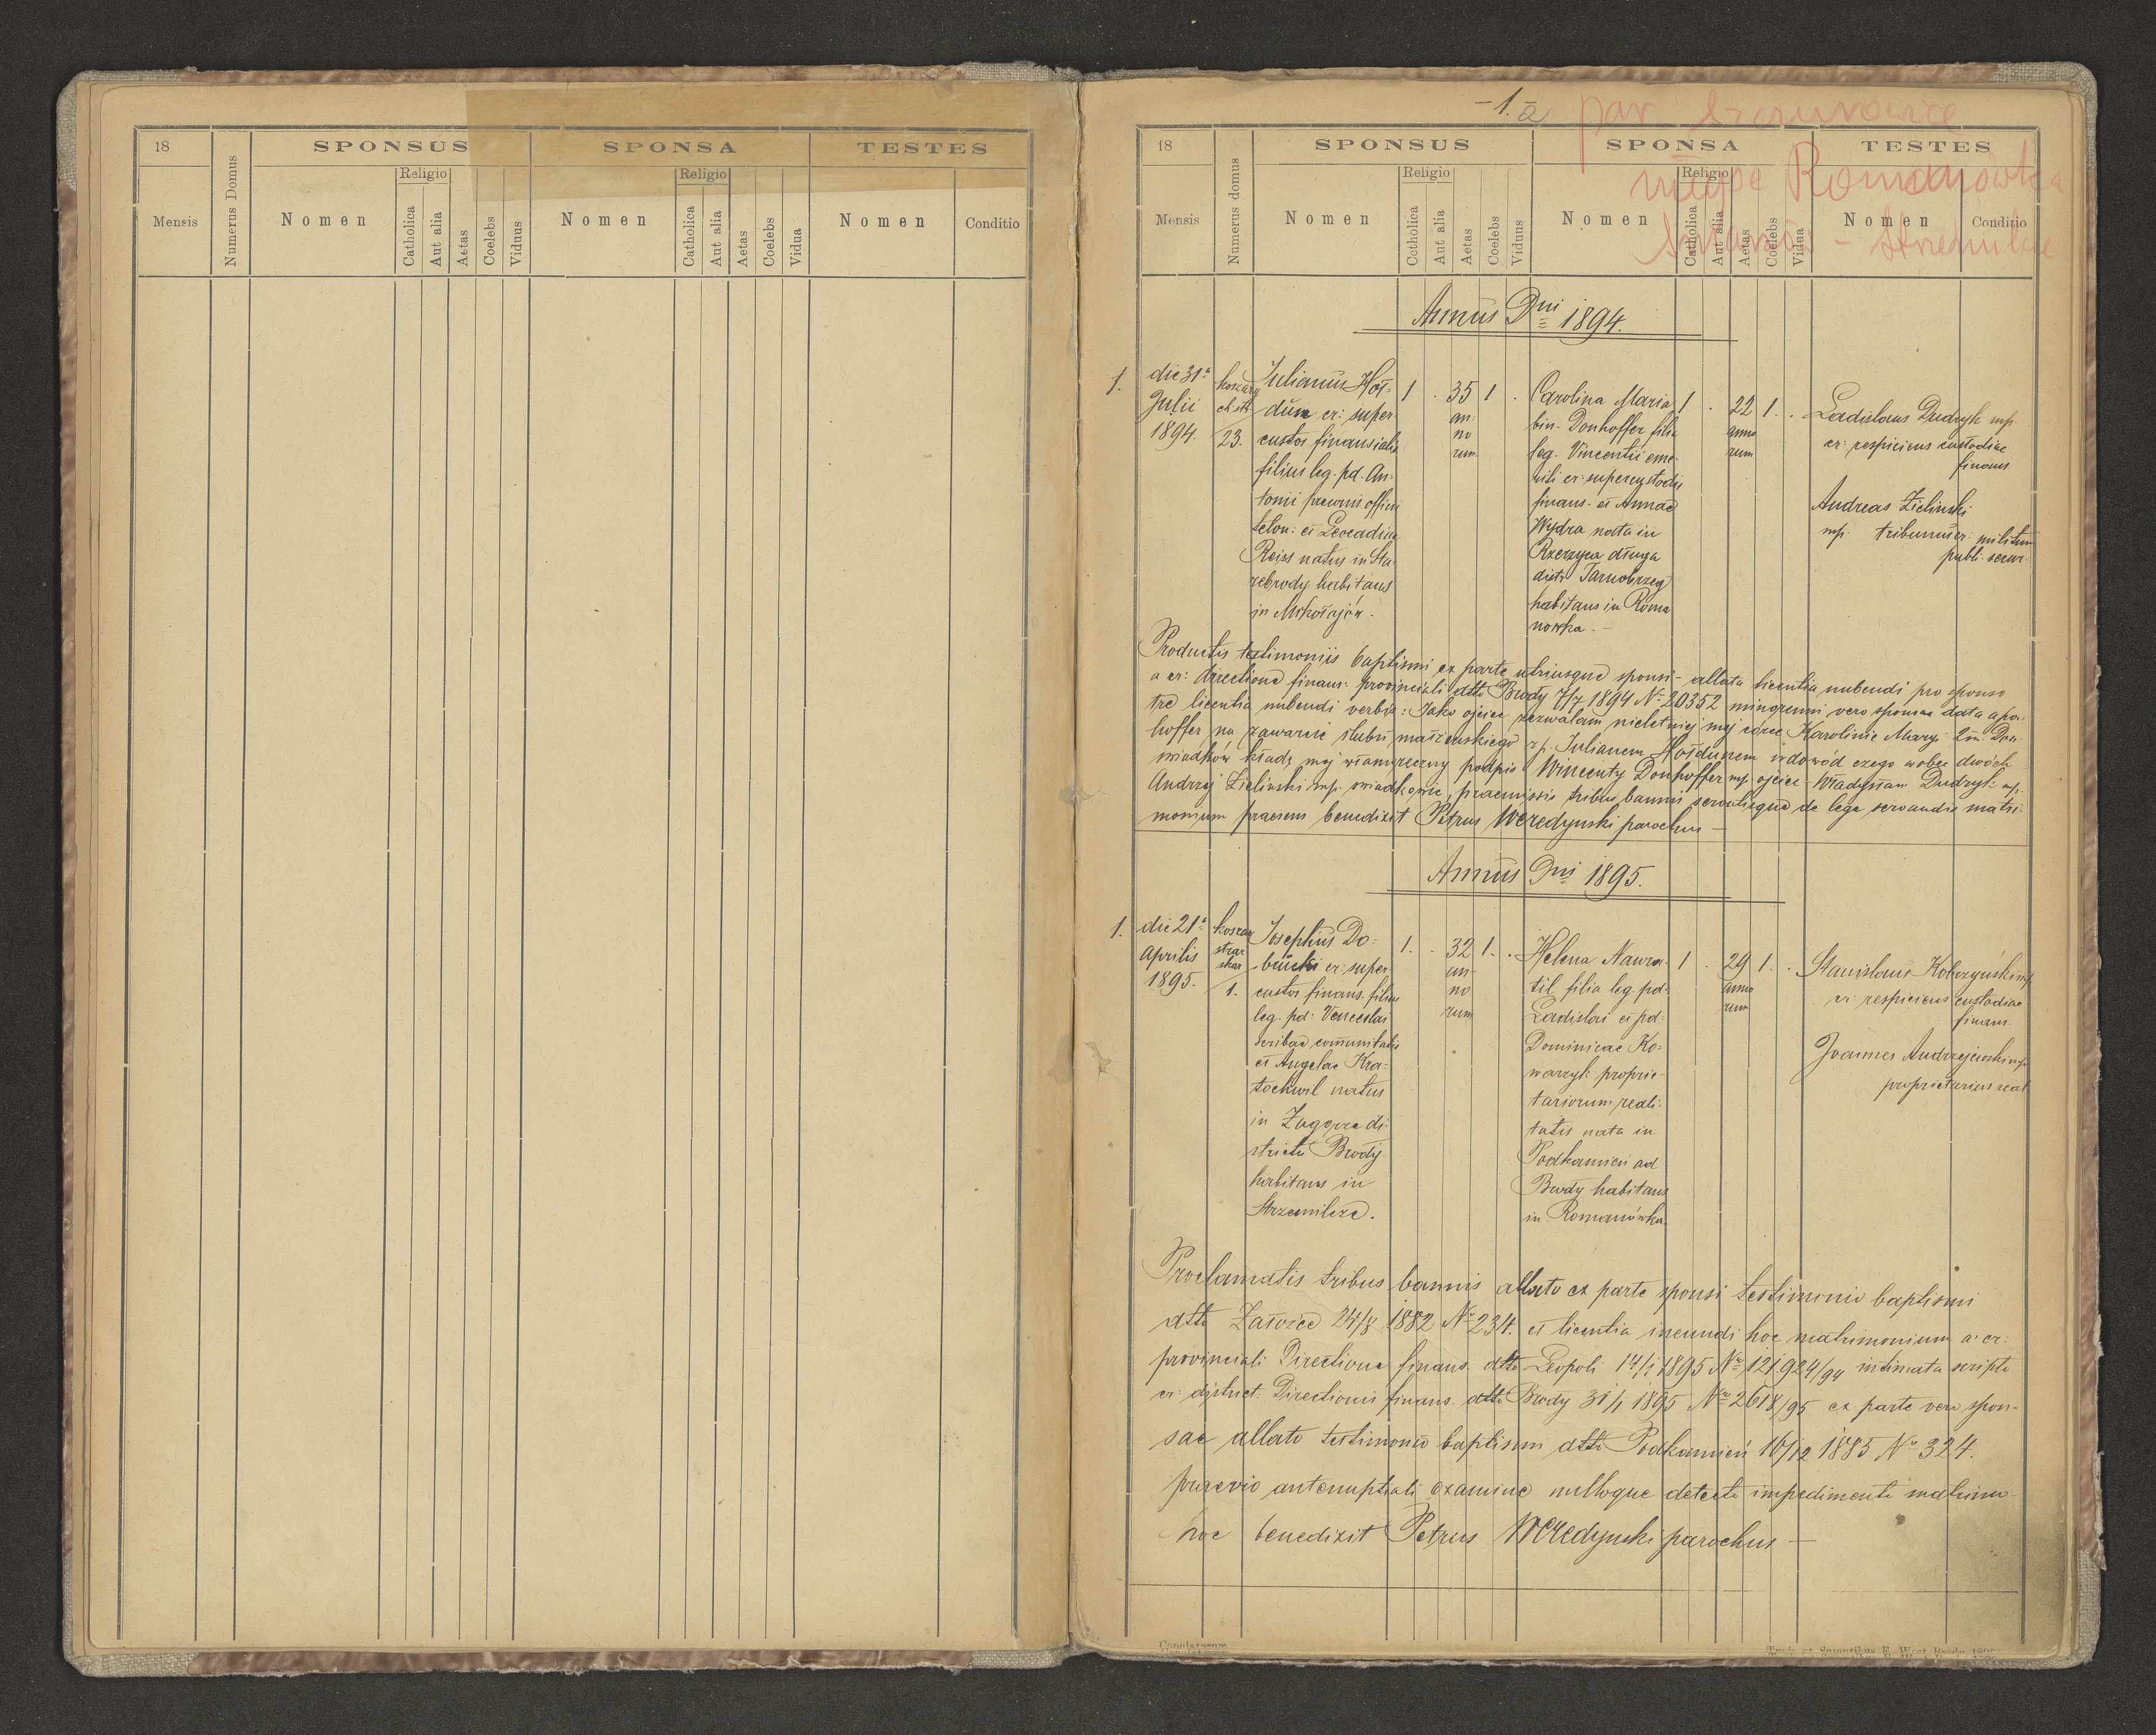 18
SPONSUS
SPONSA
TESTES
Mensis
Numerus Domus
Nomen
Religio
Catholica
Aut alia
Aetas
Coelebs
Viduus
Nomen
Religio
Catholica
Aut alia
Aetas
Coelebs
Vidua
Nomen
Conditio
- 1. a
par
Romanówka
18
SPONSUS
SPONSA
TESTES
Mensis
Numerus domus
Nomen
Religio
Catholica
Aut alia
Aetas
Coelebs
Viduus
Nomen
Religio
Catholica
Aut alia
Aetas
Coelebs
Vidua
Nomen
Conditio
Annus Dni 1894.
1.
die 31a
Julii
1894.
23.
Julianus Hoł-
dun cr: super
custos finansialis
filius leg. pd. An-
tonii praeconis offic
telon: et Leocadiae
Reiss natus in Sta
rebrody habitans
in Mikołajów.
1 . 35 1 .
an-
no
rum
Carolina Maria
bin. Donhoffer filia
leg. Vincentii eme-
riti cr: supercustodis
finans. et Annae
Wydra nata in
Rzeczyca długa
distr Tarnobrzeg
habitans in Roma
nówka. -
1 . 22 1 . .
anno
rum
Ladislaus Dudryk mp.
cr: respiciens custodiae
finans
Andreas Zieliński
mp. tribunus cr: militum
publ: secur.
Productis testimoniis baptismi ex parte utriusque sponsi - allata licentia nubendi pro sponso
a cr: directione finans: provinciali dtto Brody 7/7 1894 No 20352 minorenni vero sponsae data a pa-
tre licentia nubendi verbis: Jako ojciec zezwalam nieletniej mej córce Karolinie Maryi 2im. Don-
hoffer na zawarcie ślubu małżeńskiego z p. Julianem Hołdunem w dowód czego wobec dwóch
świadków kładę mój własnoręczny podpis Wincenty Donhoffer mp. ojciec - Władysław Dudryk mp.
Andrzej Zieliński mp. świadkowie, praemissis tribus bannis servatisque de lege servandis matri-
monium praesens benedixit Petrus Weredynski parochus -
Annus Dni 1895.
1.
die 21a
Aprilis
1895.
koszar
straż
skar
1.
Josephus Do-
bucki cr: super
custos finans. filius
leg. pd: Venceslai
scribae communitatis
et Angelae Kra-
tochwil natus
in Zagórze di-
strictu Brody
habitans in
Strzemilcze.
1. . 32 1. .
an-
no
rum
Helena Nawra-
til filia leg. pd:
Ladislai et pd:
Dominicae Ko-
warzyk proprie-
tariorum reali-
tatis nata in
Podkamień ad
Brody habitans
in Romanówka
1 . 29 1. .
anno
rum
Stanislaus Kobrzyński mp
cr: respiciens custodiae
finans.
Joannes Andrzejewski mp.
proprietarius real
Proclamatis tribus bannis allato ex parte sponsi testimonio baptismi
dtto Załoźce 24/8 1882 No 234. et licentia ineundi hoc matrimonium a cr:
provinciali Directione finans. dtto Leopoli 14/1 1895 No 121924/94 intimata scripto
cr: district: Directionis finans. dtto Brody 31/1 1895 No 2618/95 ex parte vero spon-
sae allato testimonio baptismi dtto Podkamień 16/12 1885 No 324.
praevio antenuptiali examine nulloque detecto impedimento matrimo-
hoc benedixit Petrus Weredynski parochus -
Copulatorum